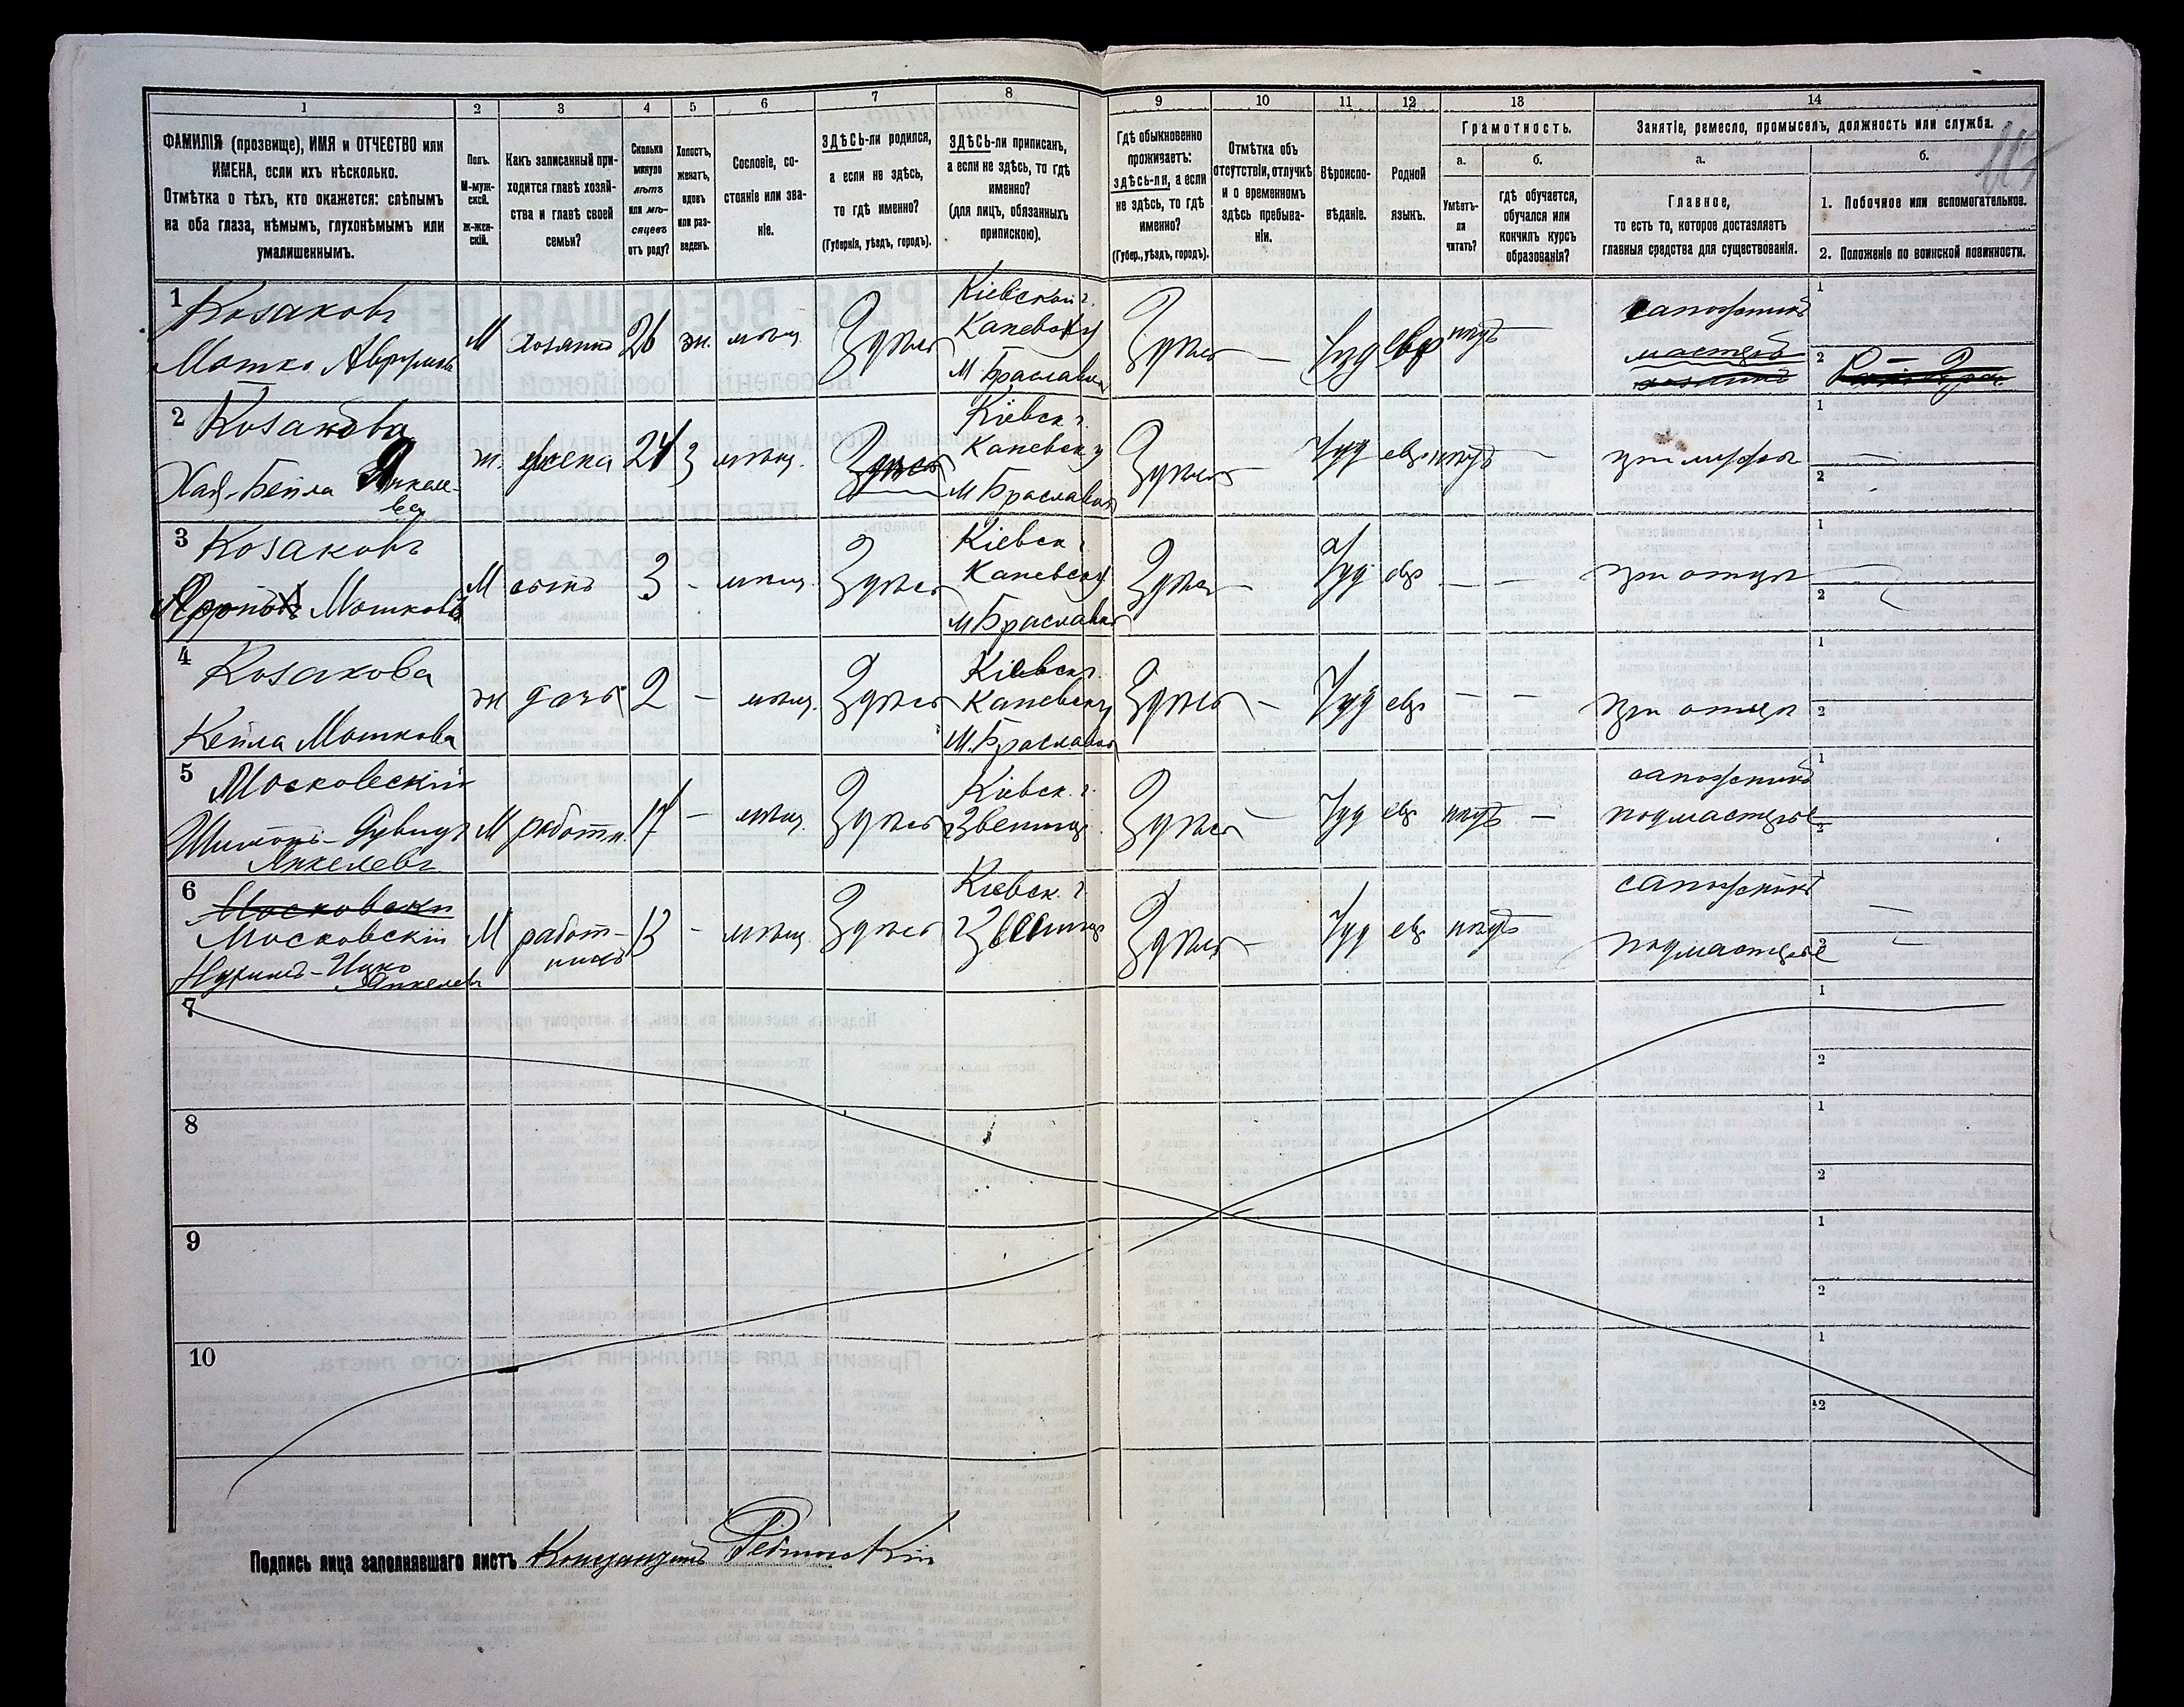 1 2 3 4 5 6 7 8 9 10 11 12 13 14
ФАМИЛІЯ (прозвище), ИМЯ и ОТЧЕСТВО или
ИМЕНА, если ихъ нѣсколько.
Отмѣтка о тѣхъ, кто окажется: слѣпымъ
на оба глаза, нѣмымъ, глухонѣмымъ или
умалишеннымъ.
Полъ.
М-муж-
ской.
Ж-жен-
скій.
Какъ записанный при-
ходится главѣ хозяй-
ства и главѣ своей
семьи?
Сколько
минуло
лѣтъ
или мѣ-
сяцевъ
отъ роду?
Холостъ,
женатъ,
вдовъ
или раз-
веденъ.
Сословіе, со-
стояніе или зва-
ніе.
ЗДѢСЬ-ли родился,
а если не здѣсь,
то гдѣ именно?
(Губернія, уѣздъ, городъ).
ЗДѢСЬ-ли приписанъ,
а если не здѣсь, то гдѣ
именно?
(для лицъ, обязанныхъ
припискою).
Гдѣ обыкновенно
проживаетъ:
здѣсь-ли, а если
не здѣсь, то гдѣ
именно?
(Губер., уѣздъ, городъ).
Отмѣтка объ
отсутствіи, отлучкѣ
и о временномъ
здѣсь пребыва-
ніи.
Вѣроиспо-
вѣданіе.
Родной
языкъ.
Грамотность.
а.
Умѣетъ-
ли
читать?
б.
гдѣ обучается,
обучался или
кончилъ курсъ
образованія?
Занятіе, ремесло, промыселъ, должность или служба.
а.
Главное,
то есть то, которое доставляетъ
главныя средства для существованія.
б.
1. Побочное или вспомогательное.
2. Положеніе по воинской повинности.
1 Козаковъ
Мошко Аврумовъ
М хозяинъ 26 ж. мѣщ. Здѣсь
Кіевской г.
Каневск у
М Браславка
Здѣсь — Іуд евр нѣтъ —
сапожникъ
мастеръ
хозяинъ
1
2
2 Козакова
Хая-Бейла Янкеле-
ва
ж. жена 24 з мѣщ. Здѣсь
Кіевск г.
Каневск у
м Браславка
Здѣсь — Іуд евр нѣтъ —
при мужѣ
1
2
3 Козаковъ
Мошковъ
М сынъ 3 - мѣщ. Здѣсь
Кіевск г
Каневск у
м Браславка
Здѣсь — Іуд евр — —
при отцѣ
1
2
4 Козакова
Кейла Мошкова
ж дочь 2 — мѣщ. Здѣсь
Кіевск г.
Каневск у
М. Браславка
Здѣсь — Іуд евр — —
при отцѣ
1
2
5 Московскій
Шимонъ-Дувидъ
Янкелевъ
М работн. 17 — мѣщ. Здѣсь
Кіевск. г.
г Звениг
Здѣсь — Іуд евр нѣтъ —
сапожникъ
подмастерье
1
2
6 Московски
Московскій
Нухимъ-Ицко
Янкелевъ
М работ-
никъ
13 - мѣщ Здѣсь
Кіевск. г.
г Звениг
Здѣсь — Іуд евр нѣтъ
сапожникъ
подмастерье
1
2
7
1
2
8
1
2
9
1
2
10
1
2
Подпись лица заполнявшаго листъ